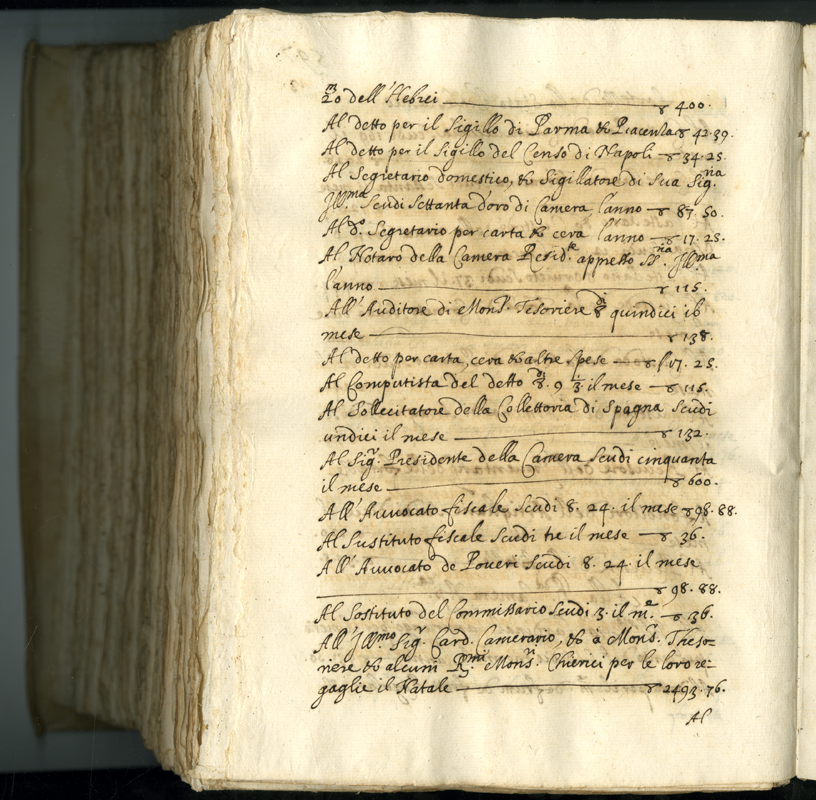 m/20 dell'Hebrei — ꝟ 400.
Al detto per il Sigillo di Parma & Piacenza ꝟ 42.39.
Al detto per il Sigillo del Censo di Napoli — ꝟ 34.25.
Al Segretario domestico, & Sigillatore di Sua Sig.ria
Ill.ma Scudi settanta d'oro di Camera l'anno — ꝟ 87.50.
Al d.o Segretario per carta & cera l'anno — ꝟ 17.25.
Al Notaro della Camera Resid.te appresso SS.ria Ill.ma
l'anno — ꝟ 115.
All'Auditore di Mons.r Tesoriere di ꝟ quindici il
mese — ꝟ 138.
Al detto per carta, cera & altre spese — ꝟ 17.25.
Al Computista del detto di ꝟ. 9 1/3 il mese — ꝟ 115.
Al Sollecitatore della Collettoria di Spagna Scudi
undici il mese — ꝟ 132.
Al Sig.r Presidente della Camera Scudi cinquanta
il mese — ꝟ 600.
All'Avvocato fiscale Scudi 8.24. il mese ꝟ 98.88.
Al Sustituto fiscale Scudi tre il mese — ꝟ 36.
All'Avvocato de Poveri Scudi 8.24 il mese
— ꝟ 98.88.
Al Sostituto del Commissario Scudi 3. il m.e — ꝟ 36.
All'Ill.mo Sig.r Card. Camerario, & a Mons.r Theso=
riere & alcuni R.mi Mons.ri Chierici per le loro re=
gaglie il Natale — ꝟ 2493.76.
Al